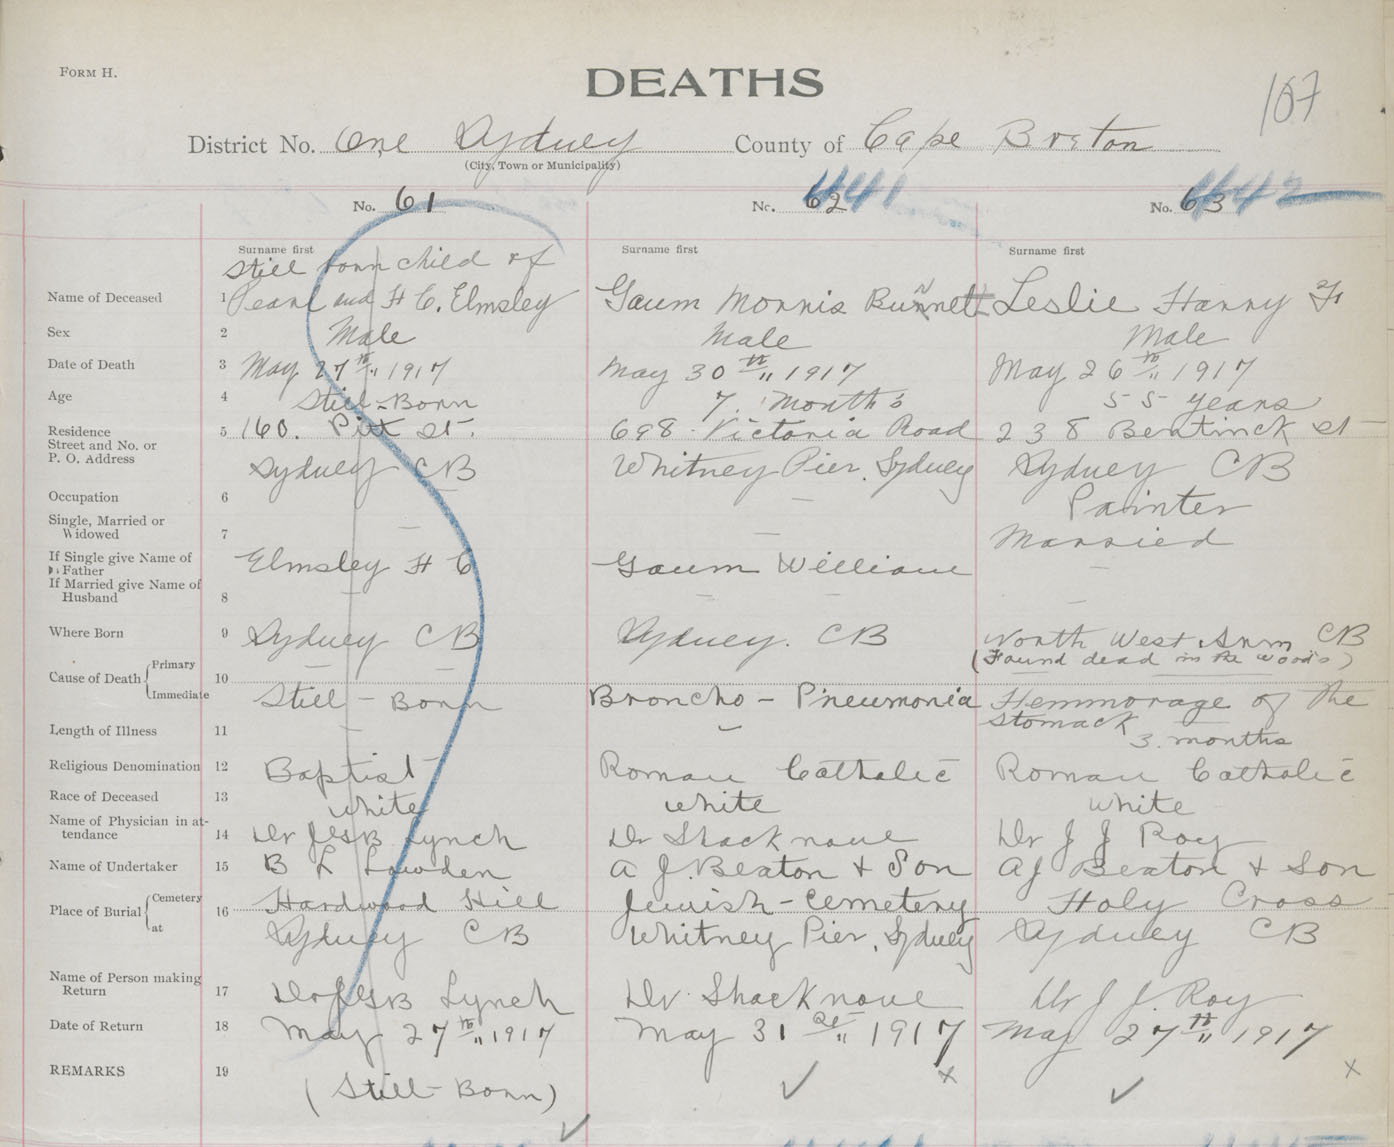 FORM H.
DEATHS
107
District No. One Sydney County of Cape Breton
(City, Town or Municipality)
441 442
No. 61 No. 62 No. 63
Surname first Surname first Surname first
Still born child of
Name of Deceased 1 Pearl and H C. Elmsley Gaum Morris Burnett Leslie Harry F
Sex 2 Male Male Male
Date of Death 3 May 27th 1917 May 30th 1917 May 26th 1917
Age 4 Still-Born 7. Months 55 years
Residence
Street and No. or
P. O. Address
5 160. Pitt St. 698 Victoria Road 238 Bentinck St
Sydney CB Whitney Pier, Sydney Sydney CB
Occupation 6 — Painter
Single, Married or
Widowed
7 — — Married
If Single give Name of
Father
Elmsley H C Gaum William —
If Married give Name of
Husband
8 — — — —
Where Born 9 Sydney CB Sydney. CB North West Arm CB
(Found dead in the woods)
Cause of Death Primary 10 — —
Immediate Still-Born Broncho-Pneumonia Hemmorage of the
Stomack
Length of Illness 11 — — 3. months
Religious Denomination 12 Baptist Roman Catholic Roman Catholic
Race of Deceased 13 white white white
Name of Physician in at-
tendance
14 Dr J G B Lynch Dr Shacknove Dr J J Roy
Name of Undertaker 15 B L Lowden A J. Beaton & Son AJ Beaton & Son
Place of Burial Cemetery 16 Hardwood Hill Jewish-Cemetery Holy Cross
at Sydney CB Whitney Pier, Sydney Sydney CB
Name of Person making
Return
17 Dr J G B Lynch Dr. Shacknove Dr J J. Roy
Date of Return 18 May 27th 1917 May 31st 1917 May 27th 1917
REMARKS 19 (Still-Born) ✓ ✓ x ✓ x